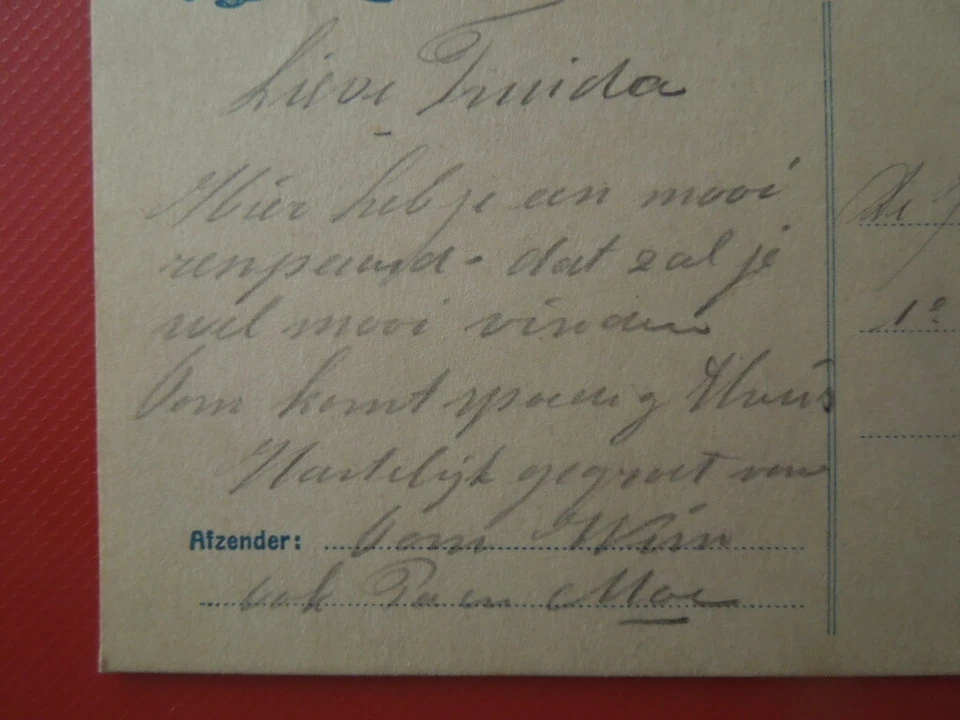 Lieve Truida
Hier heb je een mooi
renpaard - dat zal je
wel mooi vinden
Oom komt spoedig Huis
Hartelijk gegroet van
Afzender: Oom Wim
ook Pa en Moe
De
1e